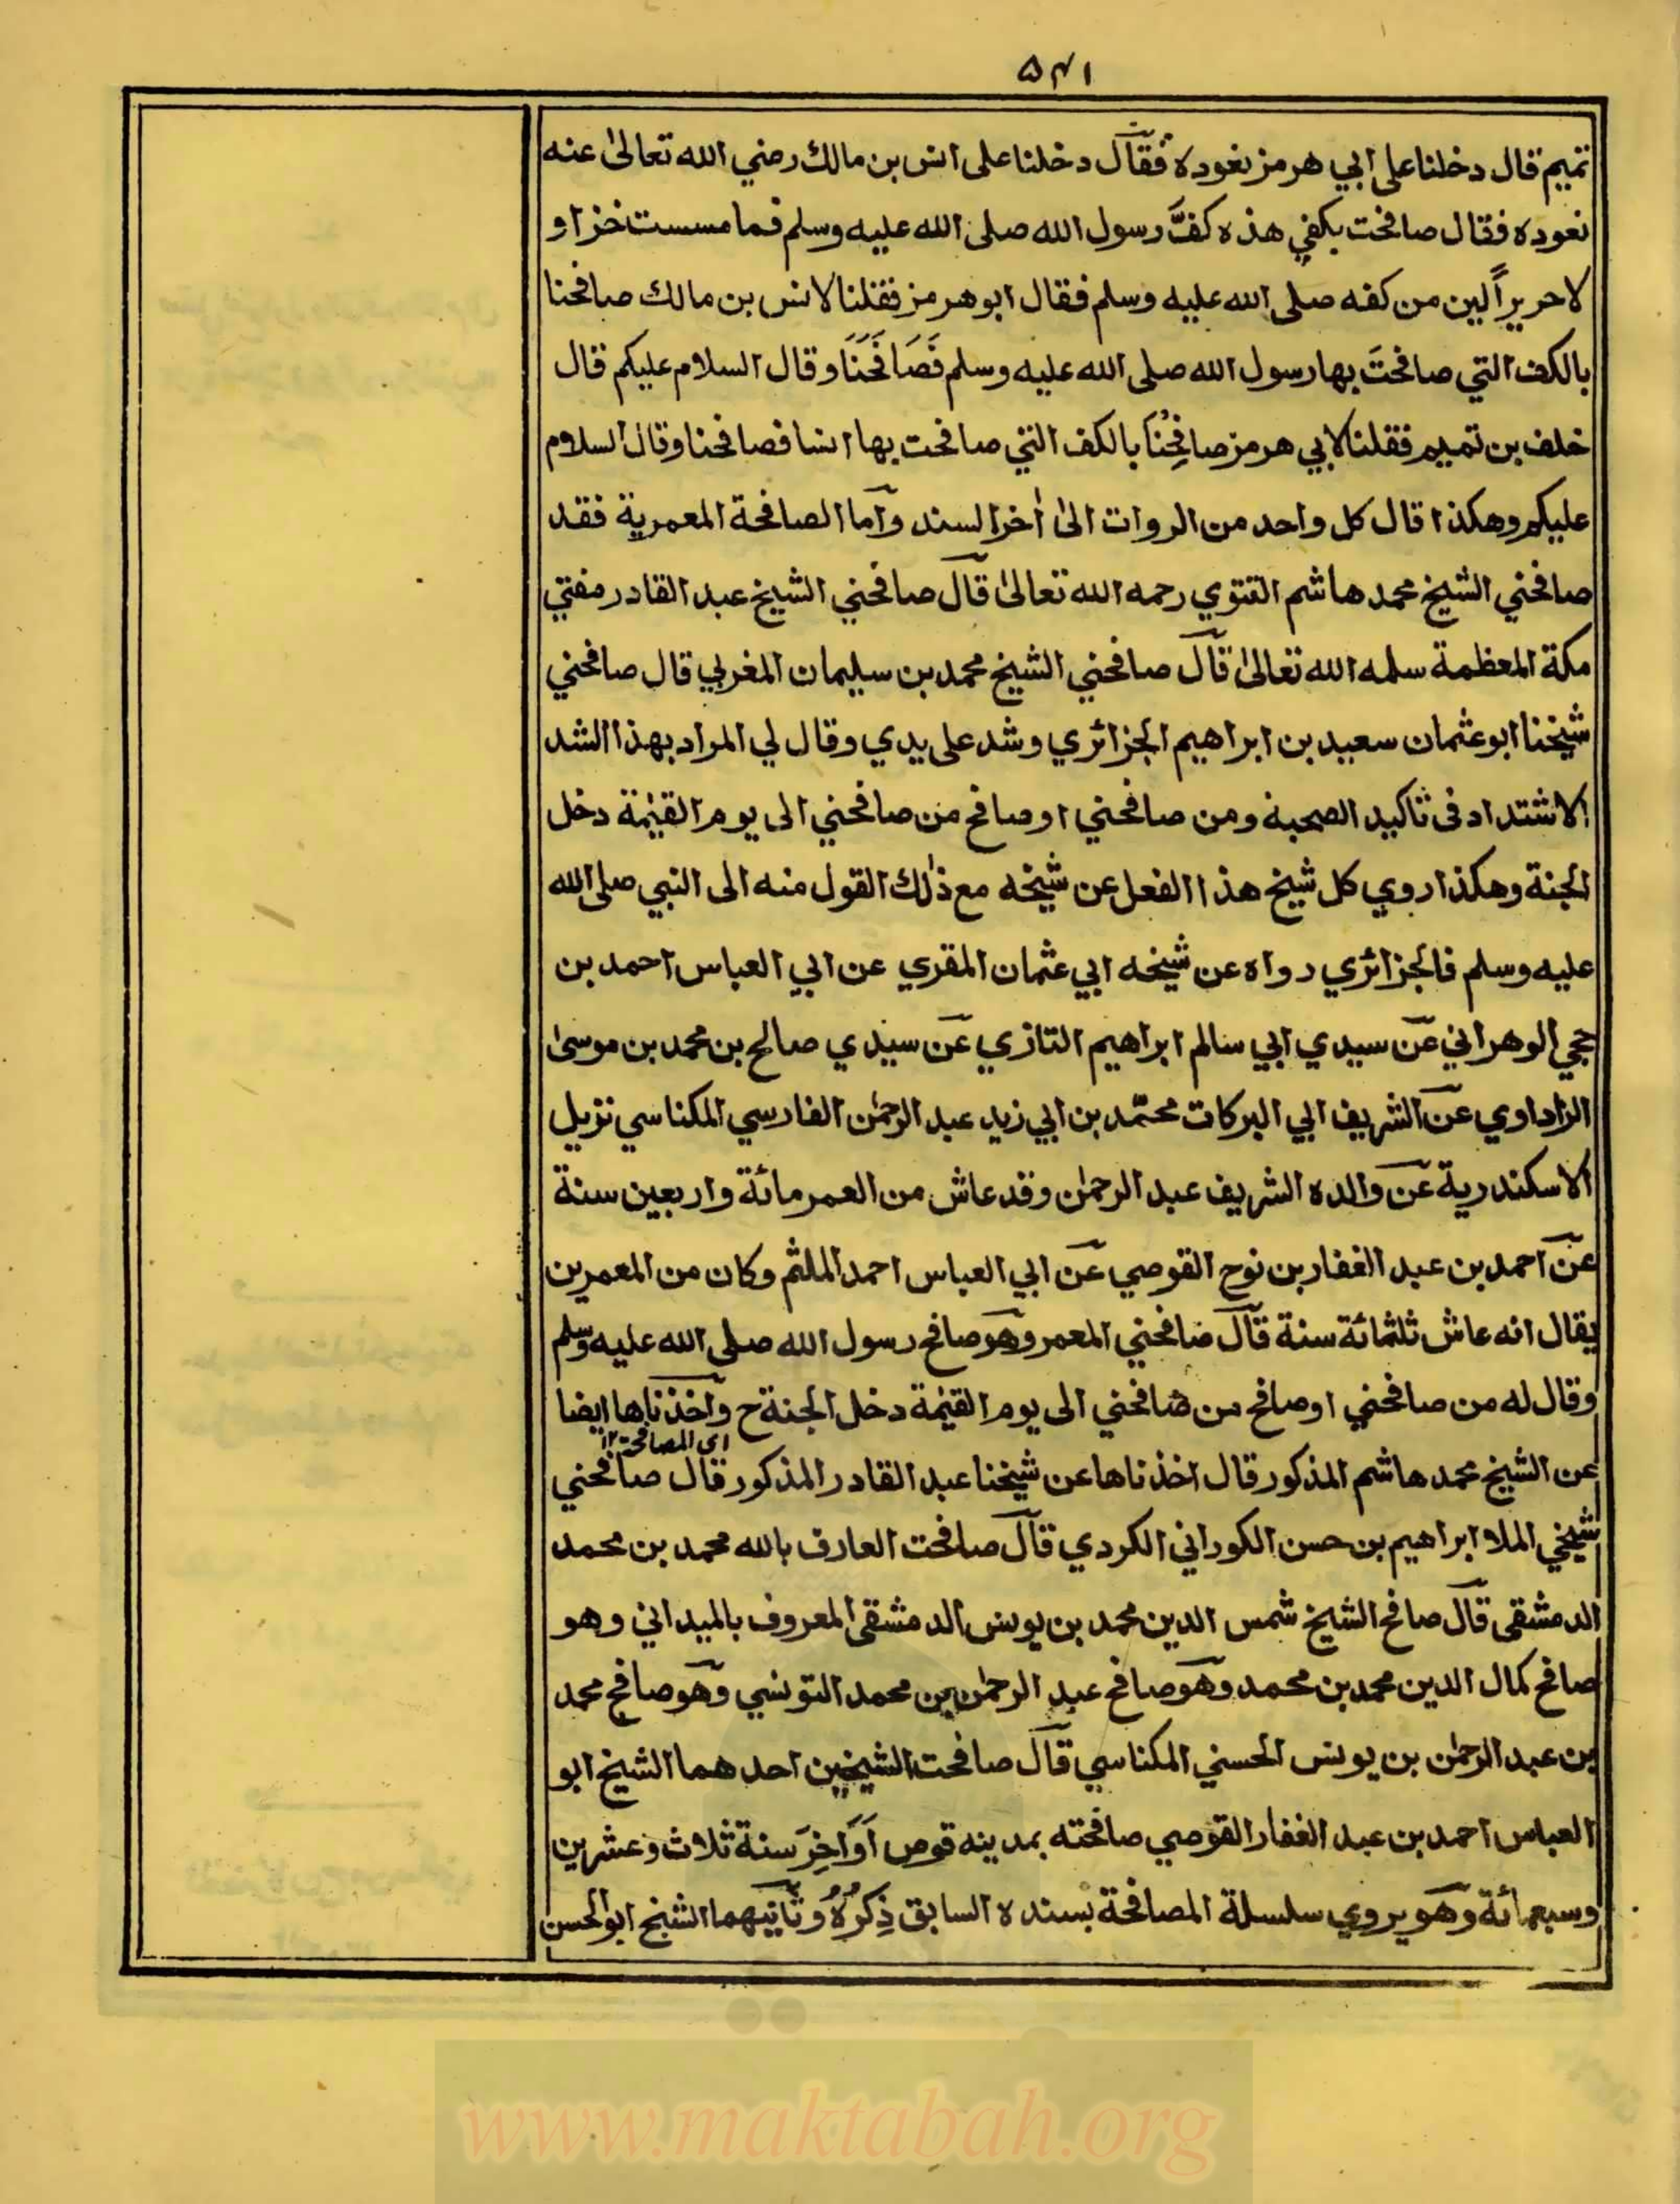 ۵۴۱
تميم قال دخلنا على ابي هرمز نعوده فقال دخلنا على انس بن مالك رضي الله تعالىٰ عنه
نعوده فقال صافحت بكفي هذه كفَّ رسول الله صلى الله عليه وسلم فما مسست خزا و
لا حريراً الين من كفه صلى الله عليه وسلم فقال ابو هرمز فقلنا لانس بن مالك صافحنا
بالكف التي صافحتَ بها رسول الله صلى الله عليه وسلم فَصَافَحَنَا وقال السلام عليكم قال
خلف بن تميم فقلنا لابي هرمز صافِحْنا بالكف التي صافحت بها انسا فصافحنا وقال السلام
عليكم وهكذا قال كل واحد من الروات الىٰ اٰخر السند وآما الصافحة المعمرية فقد
صافحني الشيخ محمد هاشم التتوي رحمه الله تعالىٰ قآل صافحني الشيخ عبد القادر مفتي
مكة المعظمة سلمه الله تعالىٰ قآل صافحني الشيخ محمد بن سليمان المغربي قال صافحني
شيخنا ابو عثمان سعيد بن ابراهيم الجزائري وشد على يدي وقال لي المراد بهذا الشد
الاشتداد في تاكيد الصحبة ومن صافحني او صافح من صافحني الى يوم القيٰمة دخل
الجنة وهكذا روي كل شيخ هذا الفعل عن شيخه مع ذٰلك القول منه الى النبي صلى الله
عليه وسلم فالجزائري رواه عن شيخه ابي عثمان المقري عن ابي العباس احمد بن
حجي الوهراني عن سيدي ابي سالم ابراهيم التازي عن سيدي صالح بن محمد بن موسىٰ
الزاداوي عن الشريف ابي البركات محمّد بن ابي زيد عبد الرحمٰن الفارسي المكناسي نزيل
الاسكندرية عن والده الشريف عبد الرحمٰن وقد عاش من العمر مائة واربعين سنة
عن احمد بن عبد الغفار بن نوح القوصي عن ابي العباس احمد الملثم وكان من المعمرين
يقال انه عاش ثلثمائة سنة قآل صافحني المعمر وهو صافح رسول الله صلى الله عليه وسلم
وقال له من صافحني او صافح من صافحني الى يوم القيٰمة دخل الجنة ح وآخذناها ايضا
اى المصافحة ۱۲
عن الشيخ محمد هاشم المذكور قال اخذناها عن شيخنا عبد القادر المذكور قال صافحني
شيخي الملا ابراهيم بن حسن الكوراني الكردي قآل صافحت العارف بالله محمد بن محمد
الدمشقي قآل صافح الشيخ شمس الدين محمد بن يونس الدمشقي المعروف بالميداني وهو
صافح كمال الدين محمد بن محمد وهو صافح عبد الرحمٰن بن محمد التونسي وهو صافح محمد
بن عبد الرحمٰن بن يونس الحسني المكناسي قآل صافحت الشيخين احدهما الشيخ ابو
العباس احمد بن عبد الغفار القوصي صافحته بمدينه قوص اَوَاخِرَ سنة ثلاث وعشرين
وسبعمائة وهو يروي سلسلة المصافحة بسنده السابق ذِكرُهُ وثانيهما الشيخ ابو الحسن
www.maktabah.org